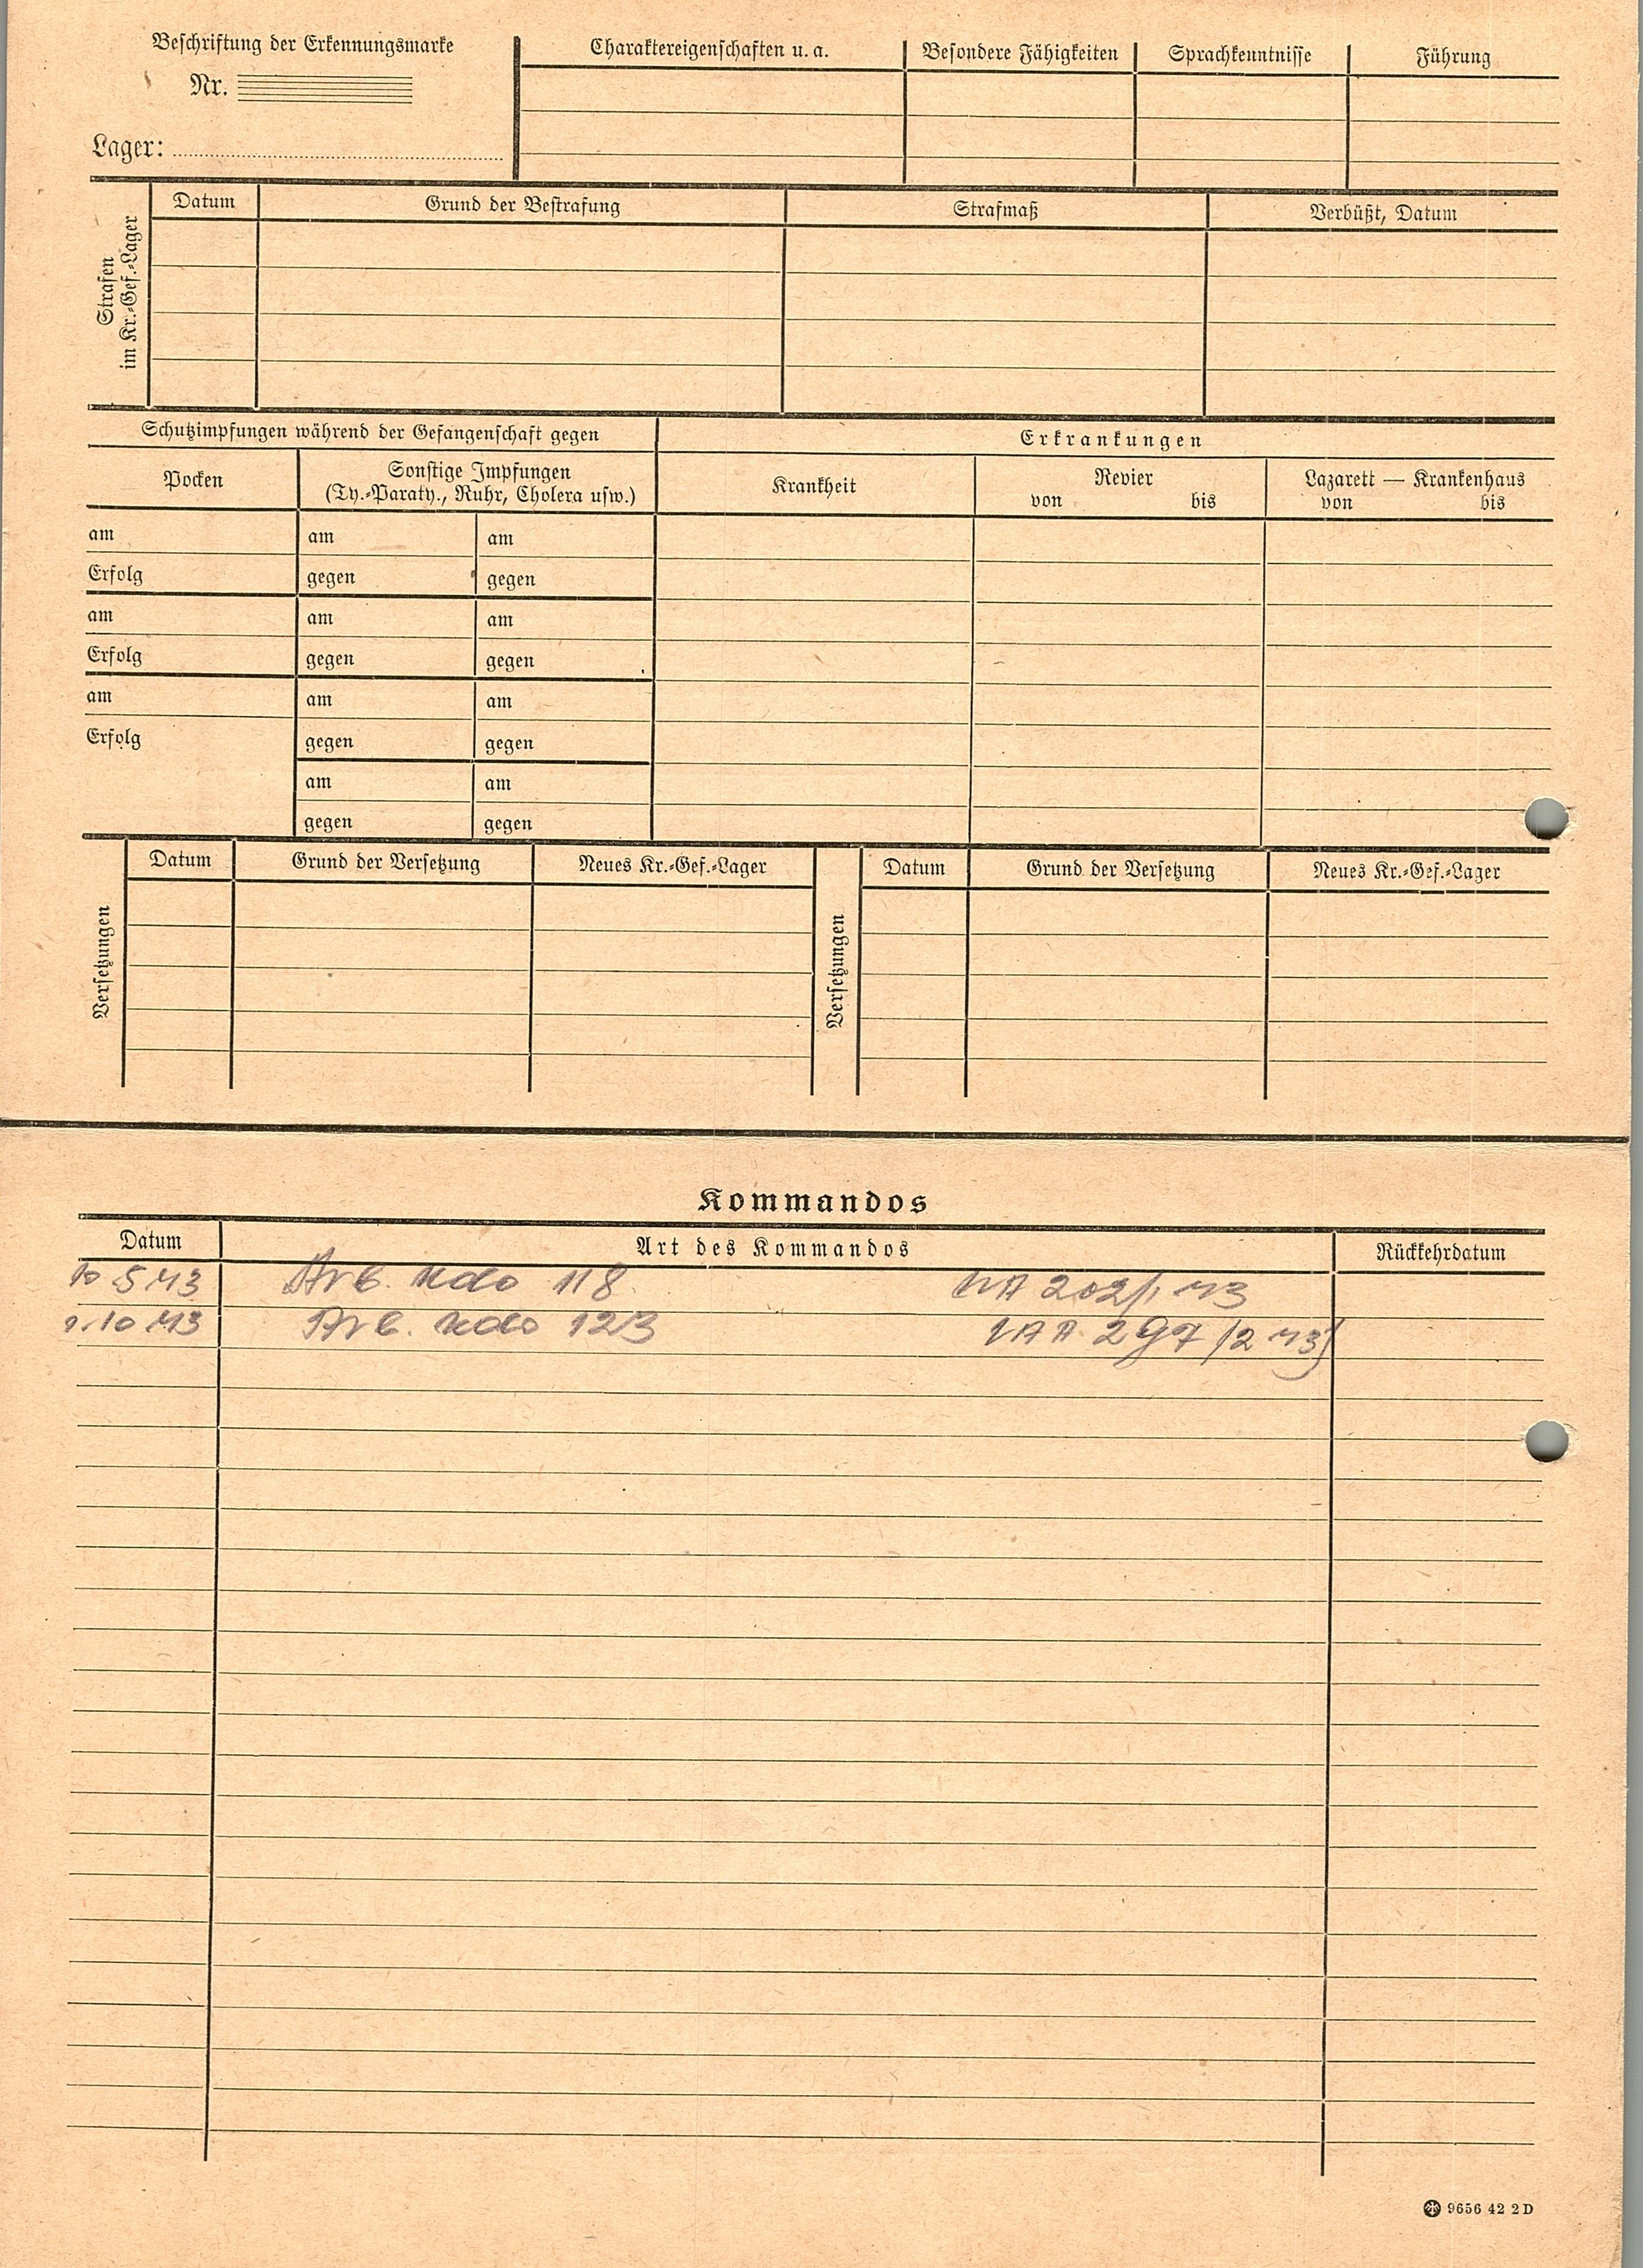 Beschriftung der Erkennungsmarke
Nr.
Lager:
Charaktereigenschaften u. a.
Besondere Fähigkeiten
Sprachkenntnisse
Führung
Strafen
im Kr.-Gef.-Lager
Datum
Grund der Bestrafung
Strafmaß
Verbüßt, Datum
Schutzimpfungen während der Gefangenschaft gegen
Erkrankungen
Pocken
Sonstige Impfungen
(Ty.-Paraty., Ruhr, Cholera usw.)
Krankheit
Revier
von bis
Lazarett — Krankenhaus
von bis
am am am
Erfolg gegen gegen
am am am
Erfolg gegen gegen
am am am
Erfolg gegen gegen
am am
gegen gegen
Versetzungen
Datum
Grund der Versetzung
Neues Kr.-Gef.-Lager
Versetzungen
Datum
Grund der Versetzung
Neues Kr.-Gef.-Lager
Kommandos
Datum
Art des Kommandos
Rückkehrdatum
10.5.43 Arb. Kdo 118 202/1 43
10.43 Arb. Kdo 123 297/2 43
9656 42 2 D